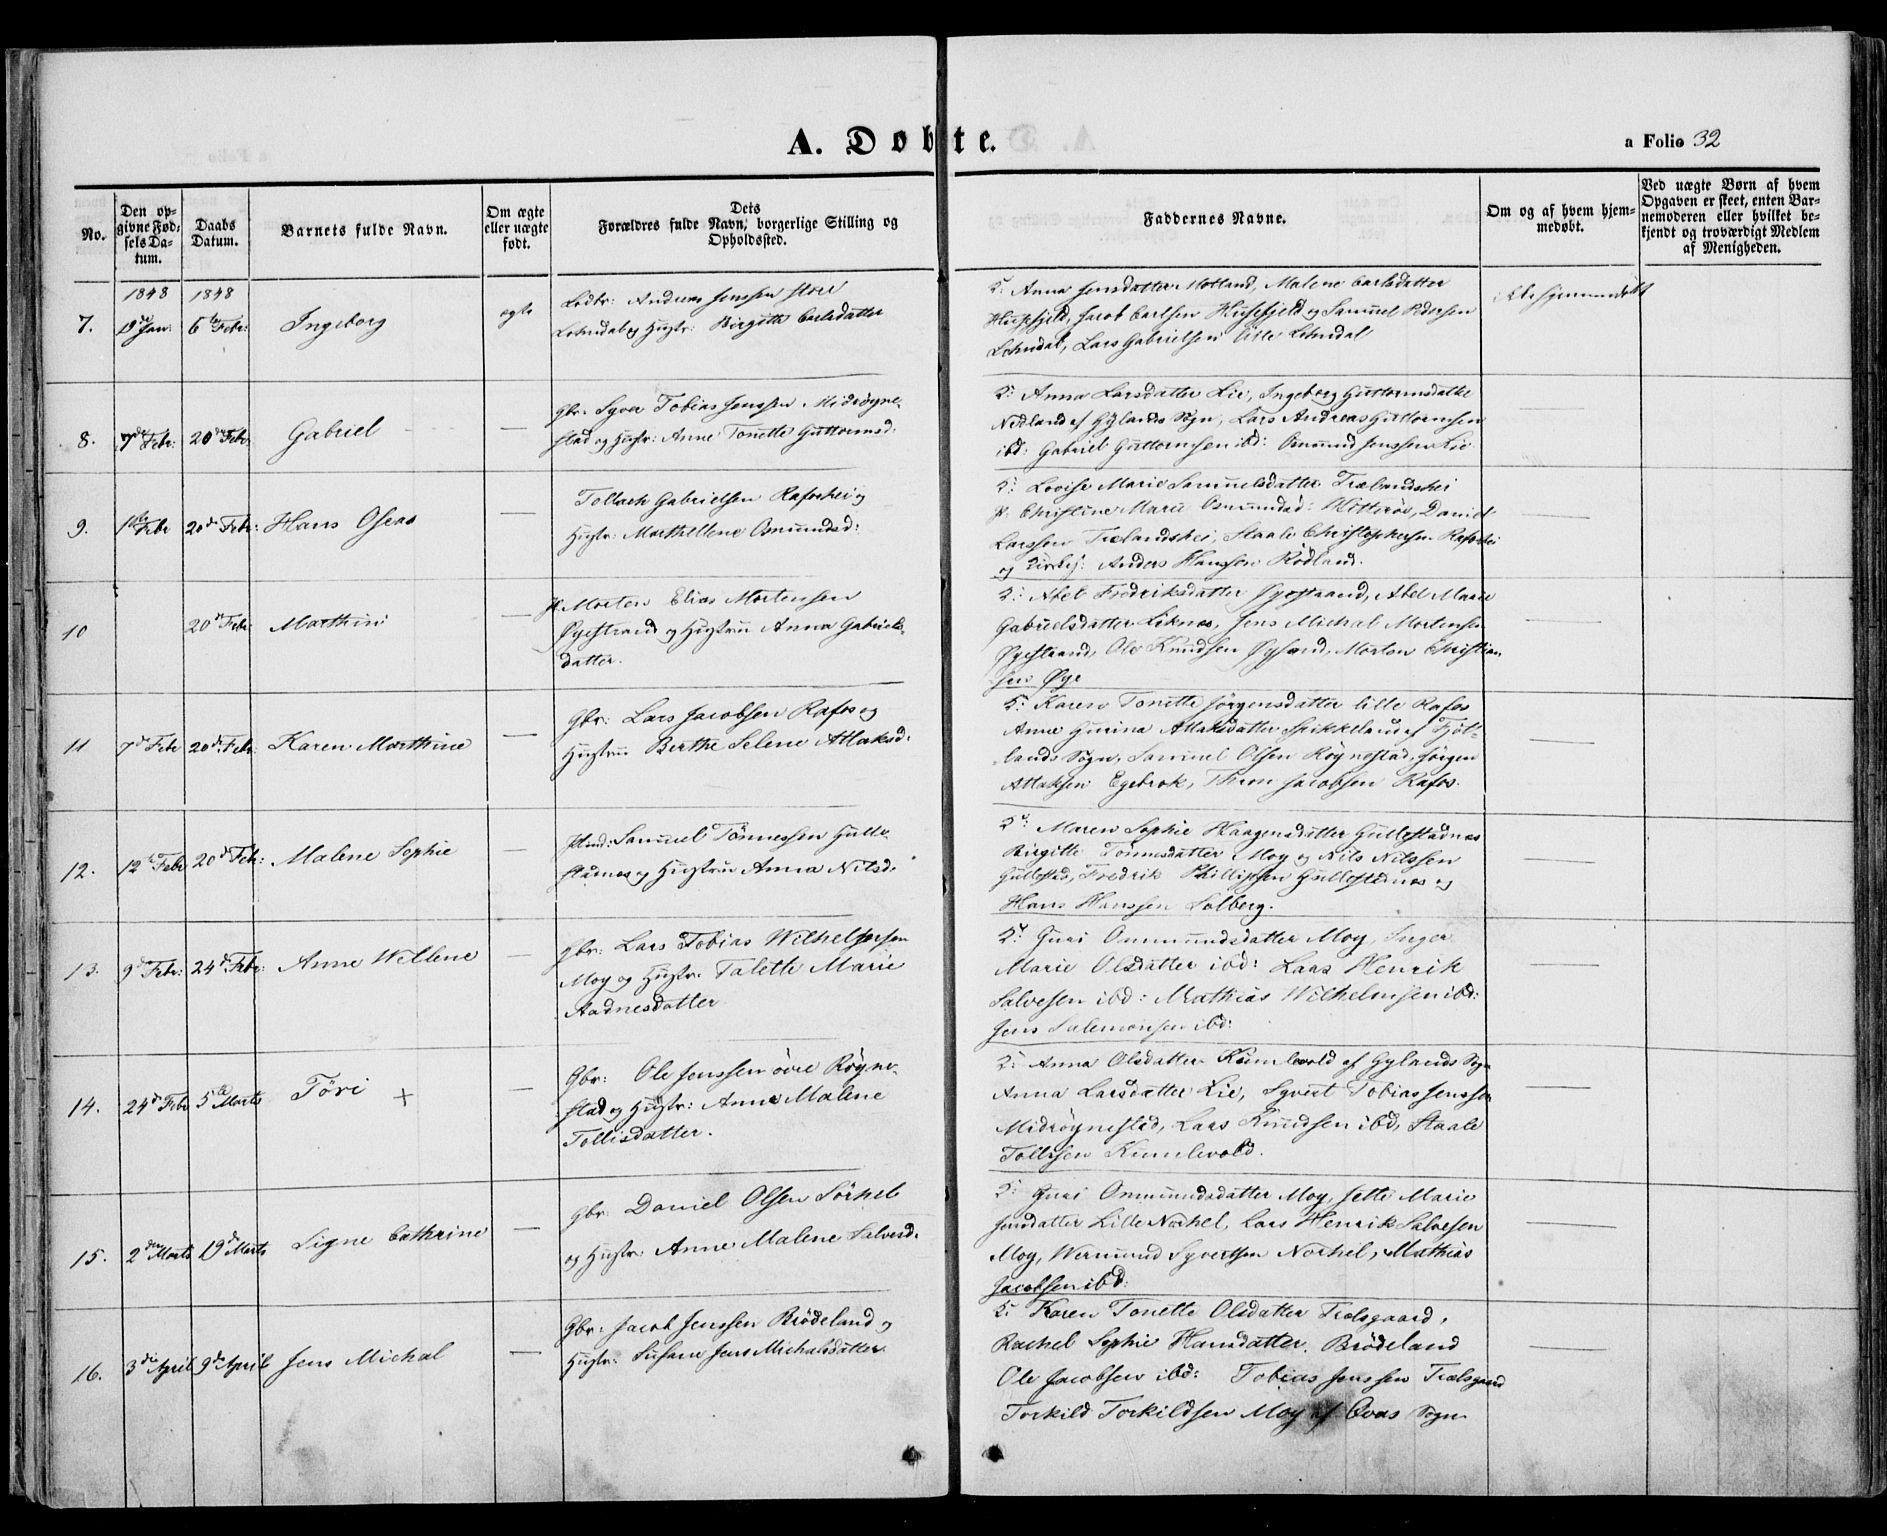 A. Døbte.
a Folio 32
No.
Den op-
givne Fød-
sels Da-
tum.
Daabs
Datum.
Barnets fulde Navn.
Om ægte
eller uægte
født.
Dets
Forældres fulde Navn, borgerlige Stilling og
Opholdssted.
Faddernes Navne.
Om og af hvem hjem-
medøbt.
Ved uægte Børn af hvem
Opgaven er skeet, enten Bar-
nemoderen eller hvilket be-
kjendt og troværdigt Medlem
af Menigheden.
1848 1848
7. Jan: 6te Febr: Ingeborg ægte
Andreas Jenssen store
Lohndal og Hustr: Birgitte Carlsdatter
5: Anna Jensdatter Motland, Malene Carlsdatter
Husefjeld, Jacob Carlsen Husefjeld og Samuel Pedersen
Lohndal, Lars Gabrielsen lille Lohndal
ikke hjemmedøbt
8. 7de Febr: 20de Febr Gabriel —
Gbr: Syver Tobias Jenssen Midrøyne-
stad og Hustr: Anne Tonette Guttormsd:
5: Anna Larsdatter Lie, Ingeborg Guttormsdatter
Nedland af Gylands Sogn, Lars Andreas Guttormsen
ibd: Gabriel Guttormsen ibd: Omund Jenssen Lie
9. 1ste Febr 20de Febr: Hans Oseas —
Tollach Gabrielsen Rafoshei og
Hustr: Marthellene Osmundsd:
5: Lovise Marie Samuelsdatter Trælandshei
Christine Marie Osmundsd: Hitterøe, Daniel
Larssen Trælandshei, Staale Christophersen Rafoshei
og Anders Hanssen Rødland.
10 20de Febr: Marthine —
Morten Elias Mortensen
Øyestrand og Hustru Anna Gabriels-
datter.
5: Abel Fredriksdatter Øyestrand, Abel Marie
Gabrielsdatter Liknes, Jens Michal Mortensen
Øyestrand, Ole Knudsen Øysand, Morten Christian
sen Øye
11 7de Febr 20de Febr. Karen Marthine —
Gbr: Lars Jacobsen Rafos og
Hustru Berthe Selene Atlaksd:
5: Karen Tonette Jørgensdatter lille Rafos
Anne Gurina Atlaksdatter Spikkeland af Fjot-
lands Sogn, Samuel Olsen Røynestad, Jørgen
Atlaksen Egebrok, Thron Jacobsen Rafos.
12. 12te Febr 20de Febr: Malene Sophie —
Samuel Tönnessen Gulle-
stadnes og Hustru Anna Nilsd:
5: Maren Sophie Haagensdatter Gullestadnes
Birgitte Tönnesdatter Moy og Nils Nilssen
Gullestad, Fredrik Phillipsen Gullestadnes og
Hans Hanssen Solberg.
13. 9de Febr: 24de Febr: Anne Wellene —
Gbr: Lars Tobias Wilhelmsen
Moy og Hustr: Talette Marie
Aadnesdatter
5: Guri Ommundsdatter Moy, Inger
Marie Olsdatter ibd: Lars Henrik
Salvesen ibd: Mathias Wilhelmsen ibd:
Jens Salemonsen ibd:
14. 24de Febr 5te Marts Töri + —
Gbr: Ole Jenssen øvre Røyne-
stad og Hustr: Anne Malene
Tollisdatter.
5: Anna Olsdatter Kumlevold af Gylands Sogn
Anna Larsdatter Lie, Syvert Tobias Jenssen
Midrøynestad, Lars Knudsen ibd, Staale
Tollissen Kumlevold.
15. 2den Marts 19de Marts Signe Cathrine —
Gbr. Daniel Olsen Sörhel
og Hustr: Anne Malene Salvesd:
5: Guri Ommundsdatter Moy, Jette Marie
Jensdatter Lille Norhel, Lars Henrik Salvesen
Moy, Wermund Syvertsen Norhel, Mathias
Jacobsen ibd:
16. 3die April 9de April Jens Michal —
Gbr: Jacob Jenssen Brödeland og
Hustr: Susane Jens Michalsdatter
5: Karen Tonette Olsdatter Trælsgaard,
Rachel Sophie Hansdatter Brödeland
Ole Jacobsen ibd: Tobias Jenssen Trælsgaard
Torkild Torkildsen Moy af Qvas Sogn